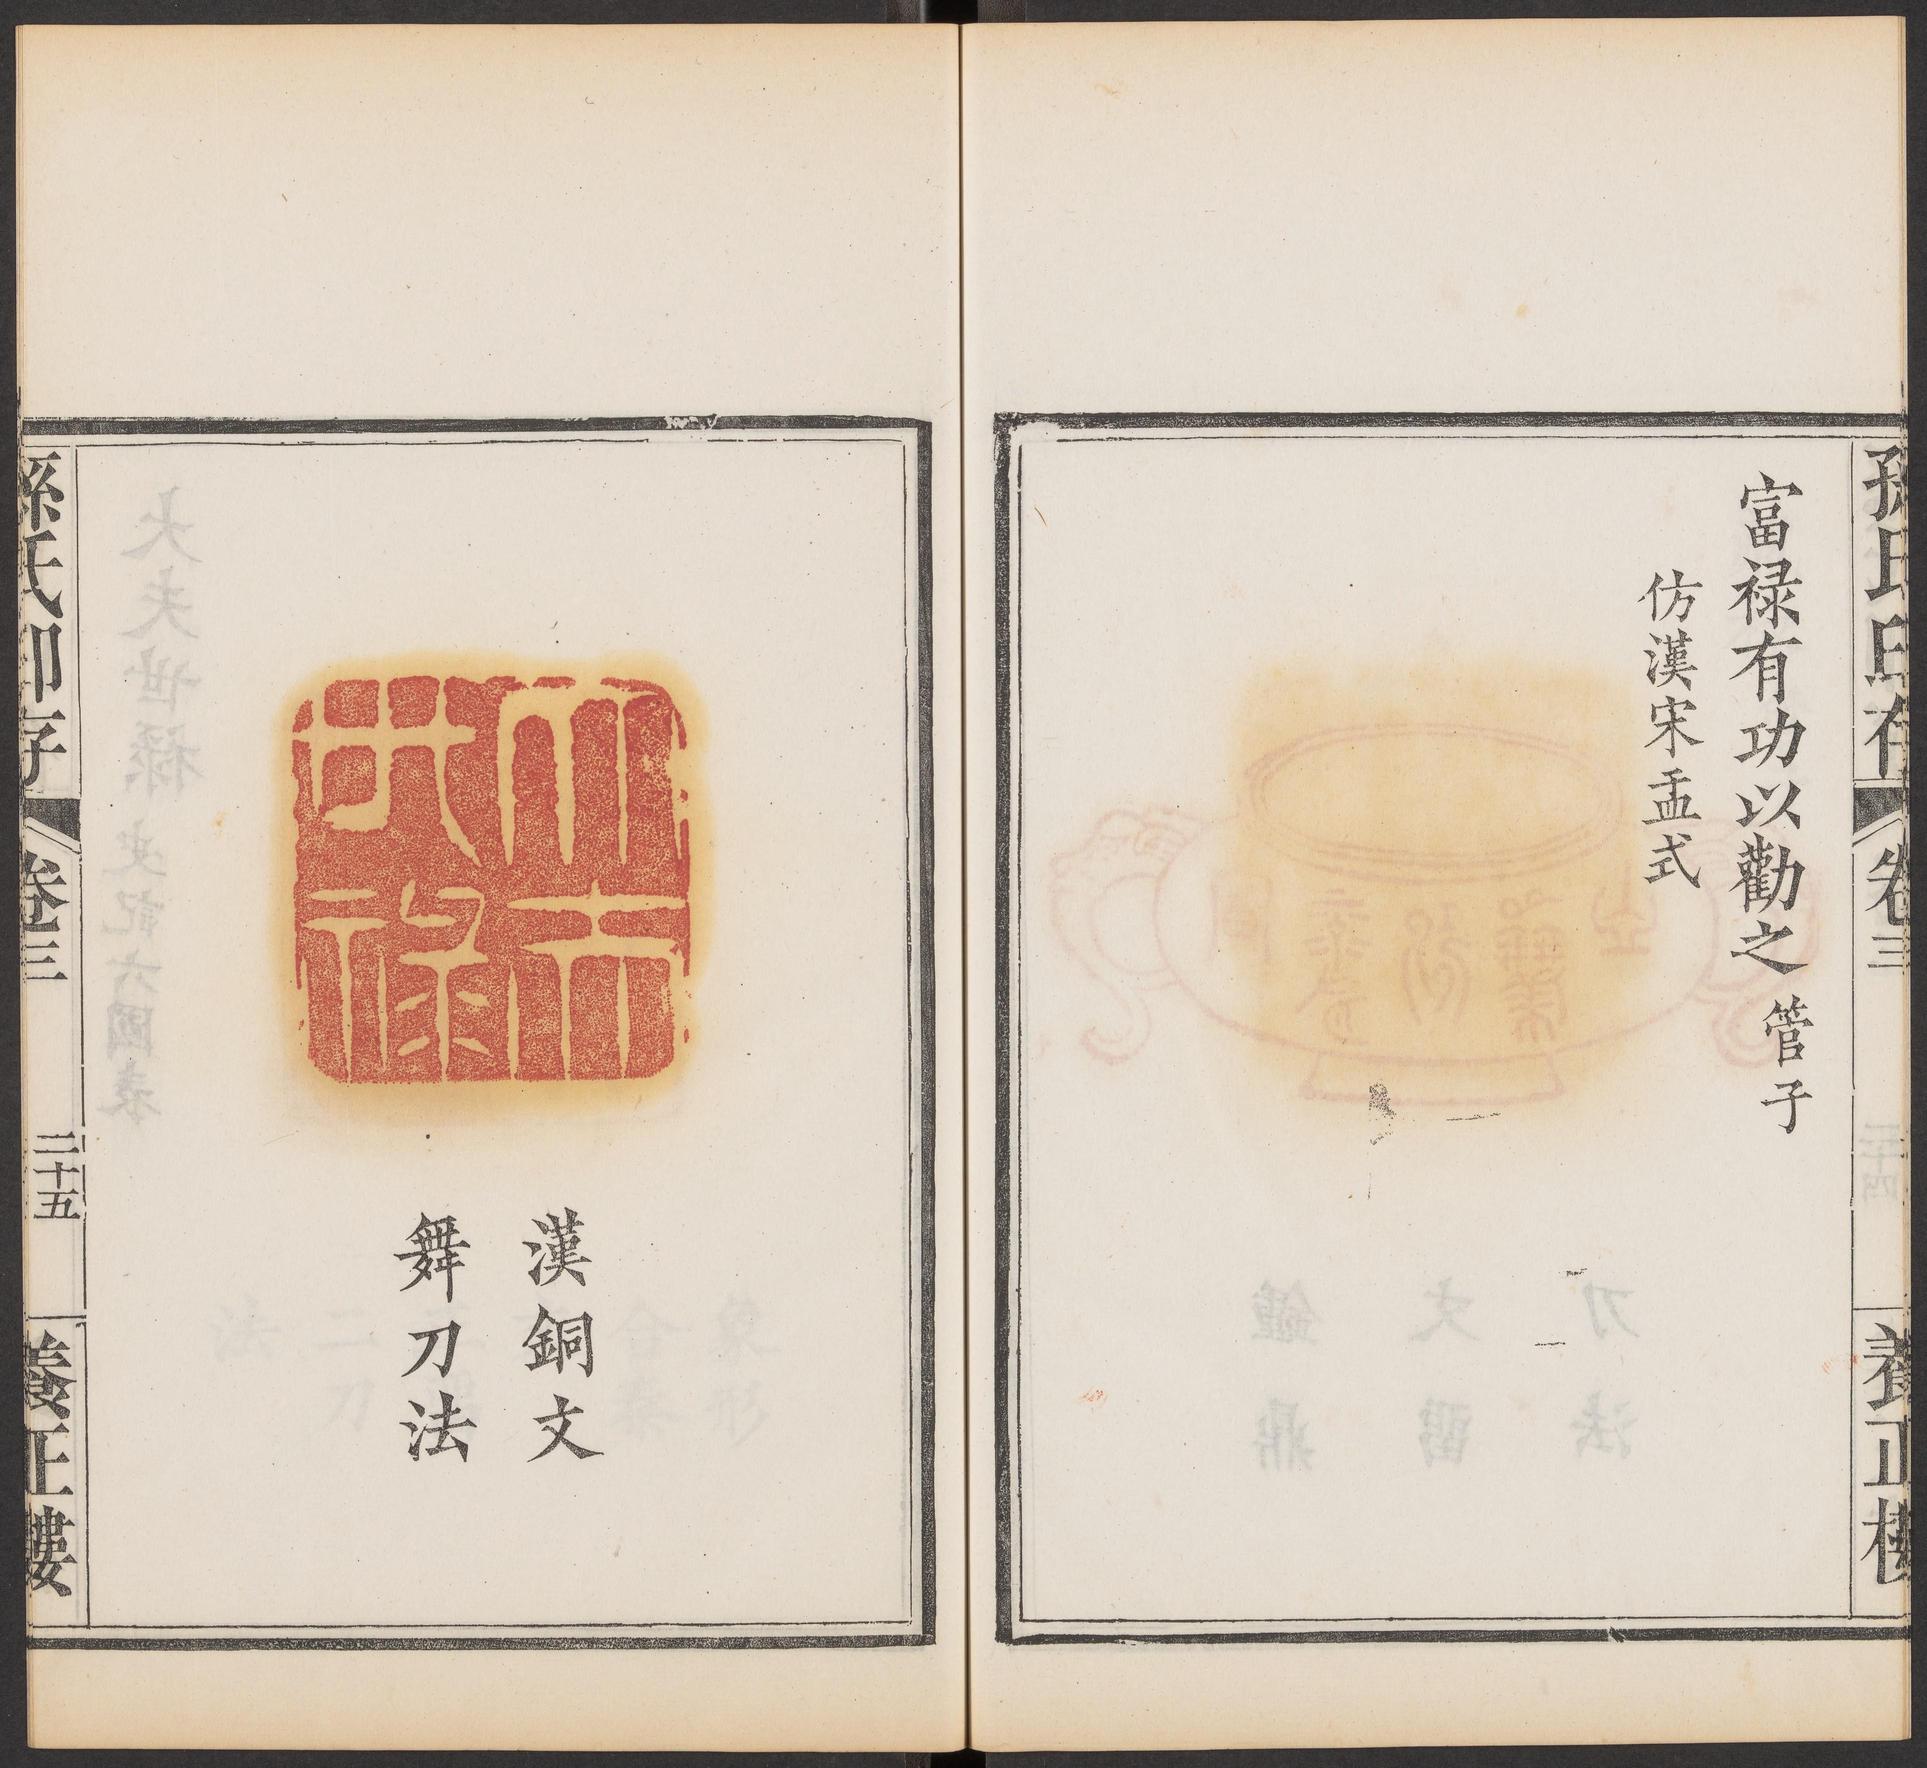 孫氏印存
卷三
養正樓
富禄有功以勸之 管子
仿漢宋盂式
大夫世祿
漢銅文
舞刀法
孫氏印存
卷三
二十五
養正樓